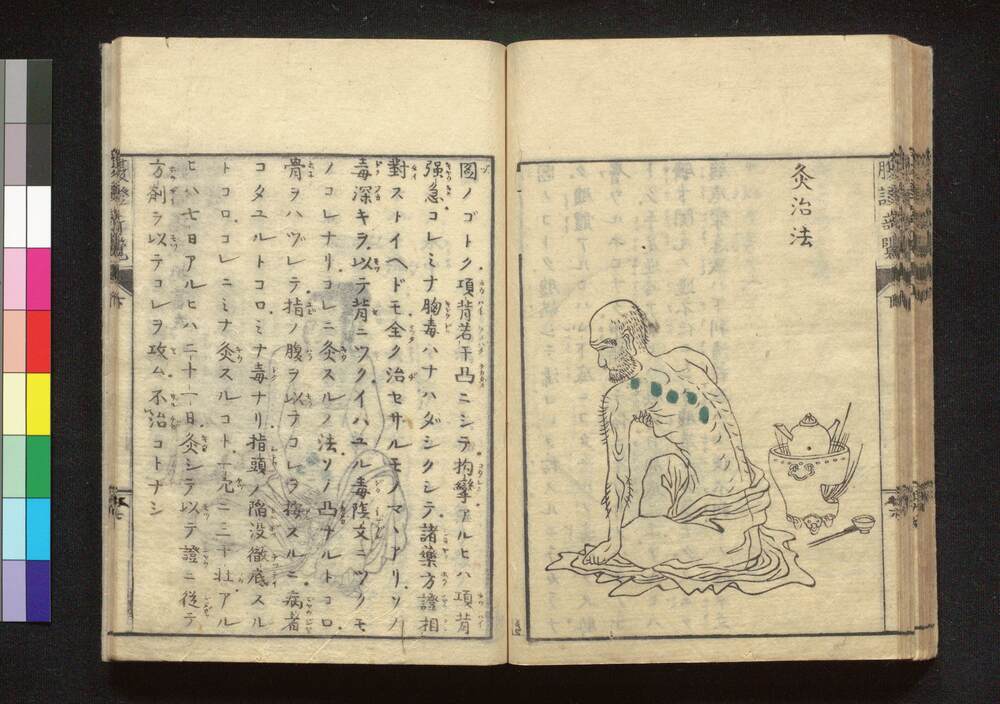 灸治法
圖ノゴトク項背若干凸ニシテ拘攣アルヒハ項背
强急コレミナ胸毒ハナハダシクシテ諸藥方證相
對ストイヘドモ全ク治セサルモノマヽアリソノ
毒深キヲ以テ背ニツクイハユル毒陰文ニツクモ
ノコレナリコレニ灸スルノ法ソノ凸ナルトコロ
骨ヲハヅレテ指ノ腹ヲ以テコレヲ按スルニ病者
コタユルトコロミナ毒ナリ指頭ノ陷没徹底スル
トコロコレニミナ灸スルコト一穴ニ三十壮アル
ヒハ七日アルヒハ二十一日灸シテ以テ證ニ従テ
方劑ヲ以テコレヲ攻ム不治コトナシ